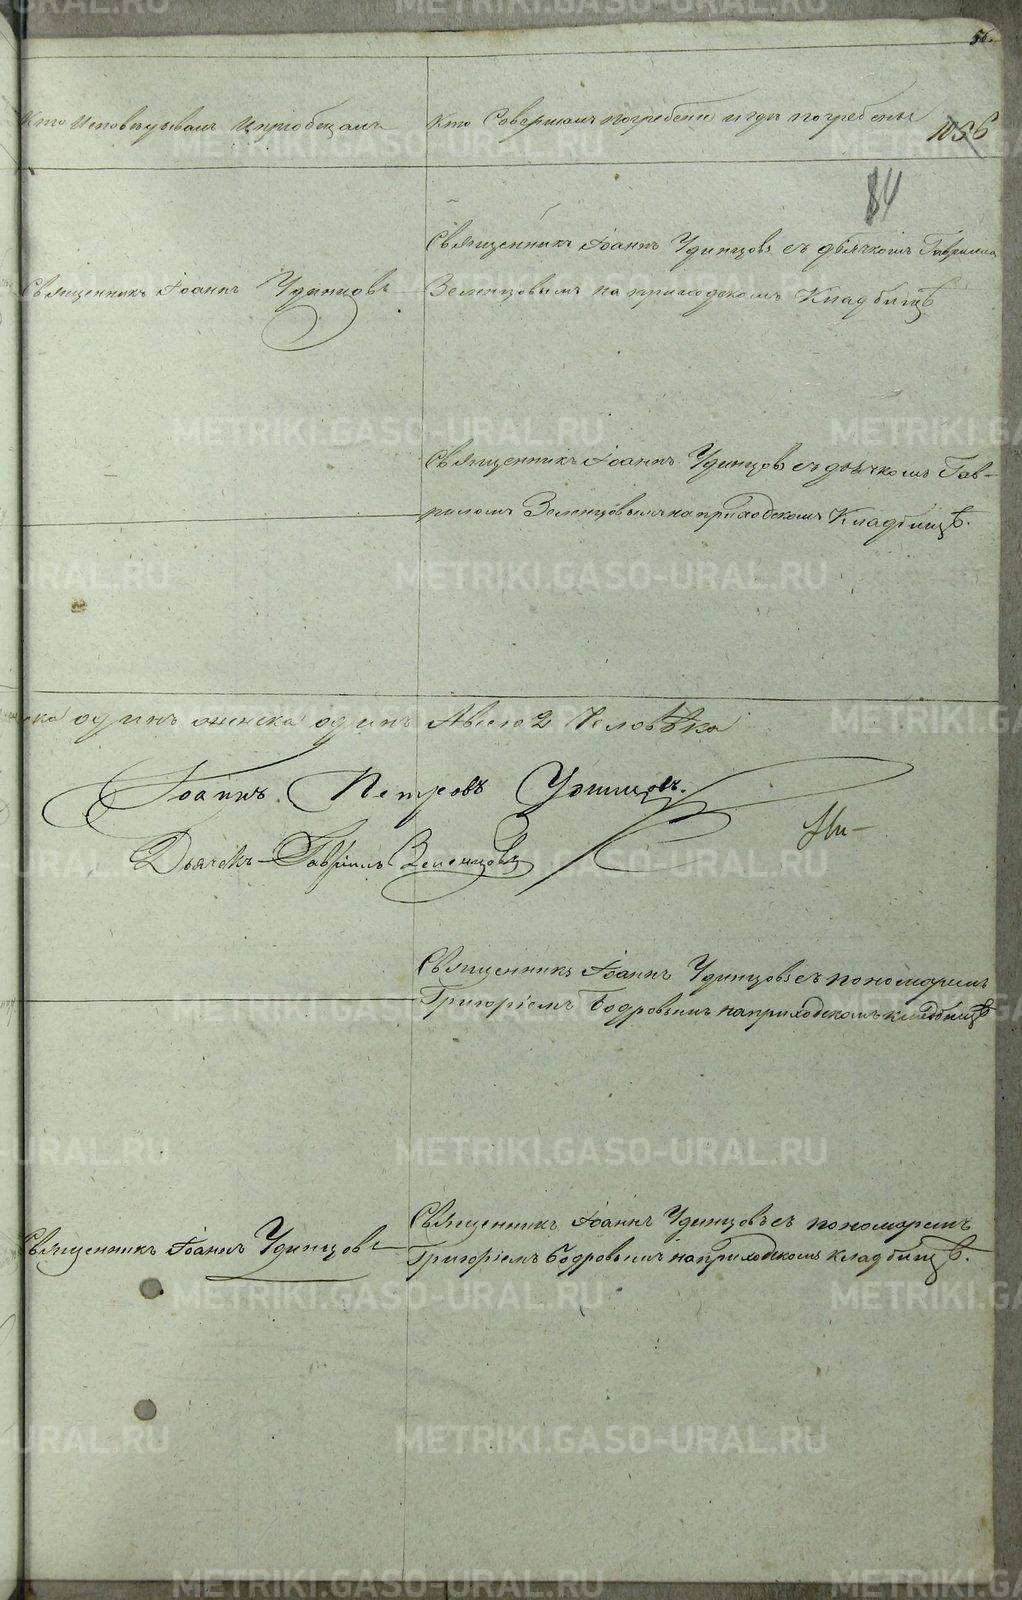 56.
Кто Исповѣдывалъ Ипріобщалъ
Кто Совершалъ погребеніе и гдѣ погребены
1056
84
Священникъ Іоаннъ Удинцовъ съ дьячкомъ Гаврилом
Священникъ Іоаннъ Удинцовъ
Зеленцовымъ на приходскомъ Кладбищѣ
Священникъ Іоаннъ Удинцовъ съ дьячкомъ Гав-
риломъ Зеленцовымъ на приходскомъ Кладбищѣ.
одинъ женска одинъ Авсего 2 Человѣка
Іоаннъ Петровъ Удинцовъ.
Дьячекъ Гавріилъ Зеленцовъ
Священникъ Іоаннъ Удинцовъ съ пономаремъ
Григоріемъ Бодровымъ на приходскомъ кладбищѣ
Священникъ Іоаннъ Удинцовъ съ пономаремъ
Священникъ Іоаннъ Удинцовъ
Григоріемъ Бодровымъ на приходскомъ кладбищѣ.
METRIKI.GASO-URAL.RU